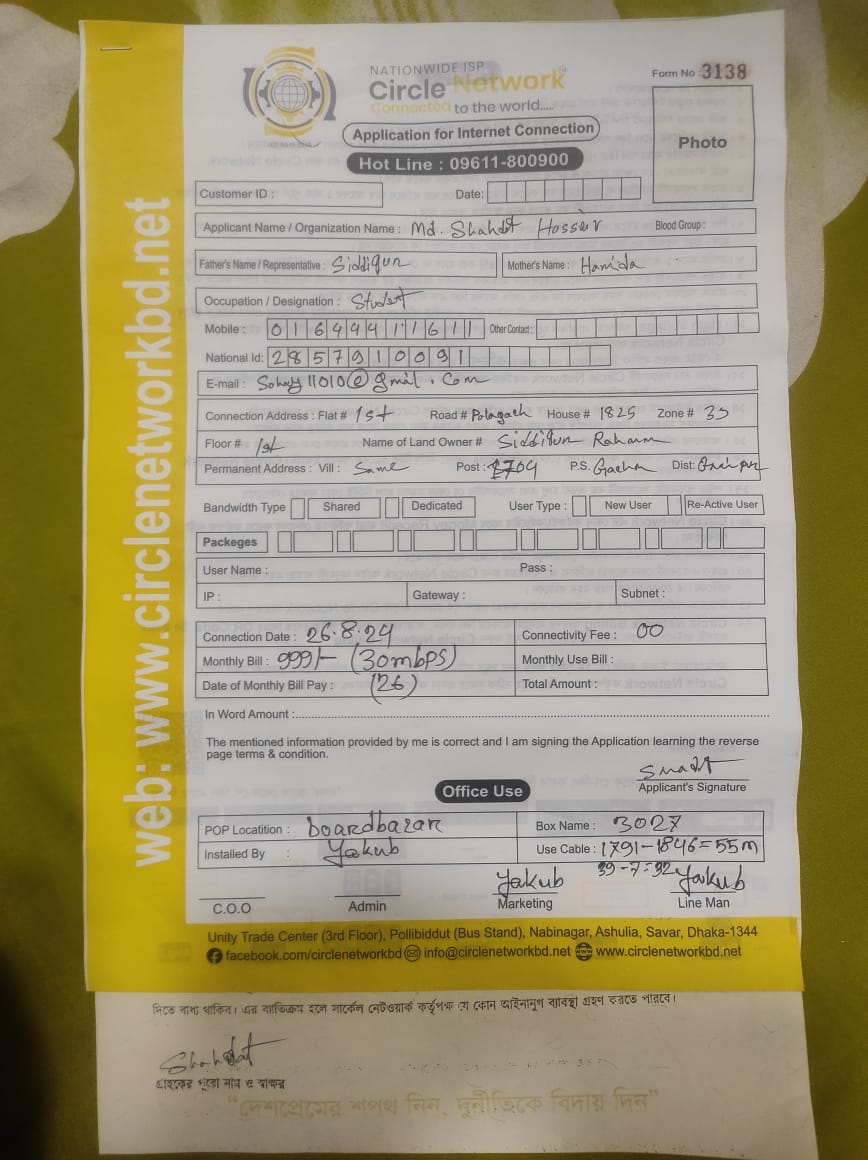 NATIONWIDE ISP
Circle Network
Connected to the world.....
Form No : 3138
Application for Internet Connection
Photo
Hot Line : 09611-800900
web: www.circlenetworkbd.net
Customer ID : Date:
Applicant Name / Organization Name : Md. Shahdat Hossen Blood Group :
Father's Name / Representative : Siddiqur Mother's Name : Hamida
Occupation / Designation : Student
Mobile : 01649441161 Other Contact :
National Id: 2857910091
E-mail : 11010@gmail.com
Connection Address : Flat # 1st Road # Polagach House # 1825 Zone # 35
Floor # 1st Name of Land Owner # Siddikur Rahman
Permanent Address : Vill : Same Post : 1704 P.S. Gacha Dist: Gazipur
Bandwidth Type Shared Dedicated User Type : New User Re-Active User
Packeges
User Name : Pass :
IP : Gateway : Subnet :
Connection Date : 26.8.24 Connectivity Fee : 00
Monthly Bill : 999/- (30mbps) Monthly Use Bill :
Date of Monthly Bill Pay : (26) Total Amount :
In Word Amount :
The mentioned information provided by me is correct and I am signing the Application learning the reverse
page terms & condition.
Applicant's Signature
Office Use
POP Locatition : boardbazar Box Name : 3027
Installed By : Yakub Use Cable : 1791-1846=55m
39-7=32
Yakub Yakub
C.O.O Admin Marketing Line Man
Unity Trade Center (3rd Floor), Pollibiddut (Bus Stand), Nabinagar, Ashulia, Savar, Dhaka-1344
facebook.com/circlenetworkbd info@circlenetworkbd.net www.circlenetworkbd.net
দিতে বাধ্য থাকিব। এর ব্যতিক্রম হলে সার্কেল নেটওয়ার্ক কর্তৃপক্ষ যে কোন আইনানুগ ব্যবস্থা গ্রহণ করতে পারবে।
Shahdat
গ্রাহকের পুরো নাম ও স্বাক্ষর
“দেশপ্রেমের শপথ নিন, দুর্নীতিকে বিদায় দিন”